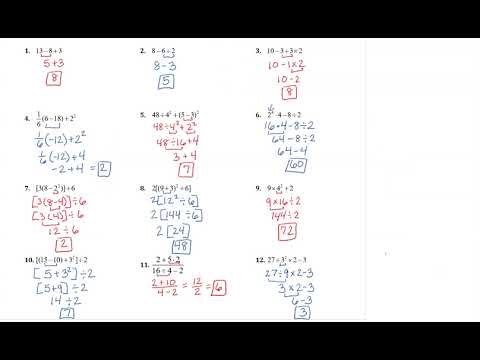 1. 13 − 8 + 3
5 + 3
8
2. 8 − 6 ÷ 2
8 − 3
5
3. 10 − 3 ÷ 3 × 2
10 − 1 × 2
10 − 2
8
4. 1/6 (6 − 18) + 2²
1/6 (-12) + 2²
1/6 (-12) + 4
-2 + 4 = 2
5. 48 ÷ 4² + (5 − 3)²
48 ÷ 4² + 2²
48 ÷ 16 + 4
3 + 4
7
16
6. 2⁴ · 4 − 8 ÷ 2
16 · 4 − 8 ÷ 2
64 − 8 ÷ 2
64 − 4
60
7. [3(8 − 2²)] ÷ 6
[3(8 − 4)] ÷ 6
[3(4)] ÷ 6
12 ÷ 6
2
8. 2[(9 + 3)² ÷ 6]
2[12² ÷ 6]
2[144 ÷ 6]
2[24]
48
9. 9 × 4² ÷ 2
9 × 16 ÷ 2
144 ÷ 2
72
10. [(15 − 10) + 3²] ÷ 2
[5 + 3²] ÷ 2
[5 + 9] ÷ 2
14 ÷ 2
7
11. 2 + 5 · 2
16 ÷ 4 − 2
2 + 10 / 4 − 2 = 12/2 = 6
12. 27 ÷ 3² × 2 − 3
27 ÷ 9 × 2 − 3
3 × 2 − 3
6 − 3
3